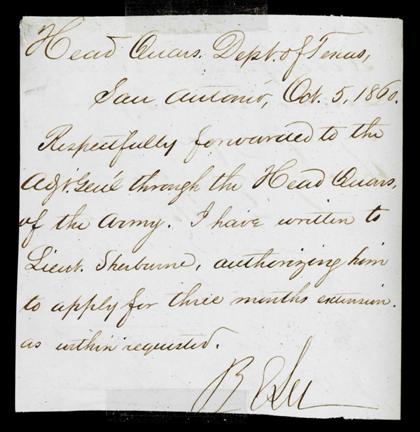 Head Quars. Dept. of Texas,
San Antonio, Oct. 5, 1860.
Respectfully forwarded to the
Adjt. Genl. through the Head Quars.
of the Army. I have written to
Lieut. Sherburne, authorizing him
to apply for three months extension.
as within requested.
R E Lee